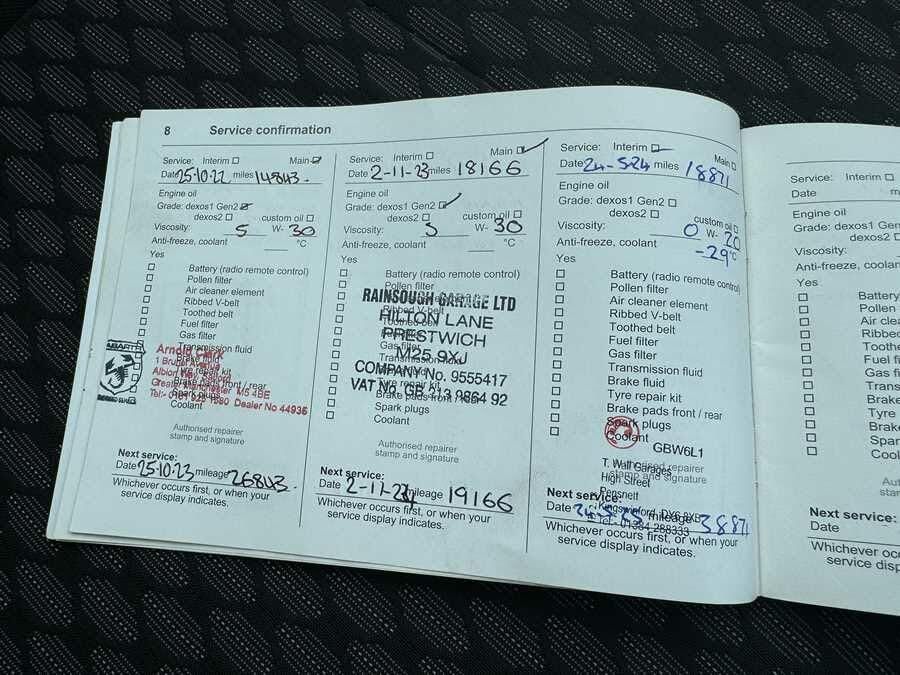 8 Service confirmation
Service: Interim Main
Date 25·10·22 miles 14843.
Engine oil
Grade: dexos1 Gen2
dexos2 custom oil
Viscosity: 5 W- 30
Anti-freeze, coolant °C
Yes
Battery (radio remote control)
Pollen filter
Air cleaner element
Ribbed V-belt
Toothed belt
Fuel filter
Gas filter
Transmission fluid
Brake fluid
Tyre repair kit
Brake pads front / rear
Spark plugs
Coolant
ABARTH
Arnold Clark
1 Bruna Avenue
Greater Manchester M5 4BE
Dealer No 44936
Authorised repairer
stamp and signature
Next service:
Date 25·10·23 mileage 26843.
Whichever occurs first, or when your
service display indicates.
Service: Interim Main
Date 2-11-23 miles 18166
Engine oil
Grade: dexos1 Gen2
dexos2 custom oil
Viscosity: 5 W- 30
Anti-freeze, coolant °C
Yes
Battery (radio remote control)
Pollen filter
Ribbed V-belt
Toothed belt
Gas filter
Transmission fluid
Tyre repair kit
Brake pads front / rear
Spark plugs
Coolant
RAINSOUGH GARAGE LTD
HILTON LANE
PRESTWICH
M25 9XJ
COMPANY No. 9555417
VAT No. GB 213 9864 92
Authorised repairer
stamp and signature
Next service:
Date 2-11-24 mileage 19166
Whichever occurs first, or when your
service display indicates.
Service: Interim Main
Date 24-5-24 miles 18871
Engine oil
Grade: dexos1 Gen2
dexos2 custom oil
Viscosity: 0 W- 20
Anti-freeze, coolant -29 °C
Yes
Battery (radio remote control)
Pollen filter
Air cleaner element
Ribbed V-belt
Toothed belt
Fuel filter
Gas filter
Transmission fluid
Brake fluid
Tyre repair kit
Brake pads front / rear
Spark plugs
Coolant
GBW6L1
T. Wall Garages
Authorised repairer
stamp and signature
High Street
Pensnett
Kingswinford, DY6 8XB
Tel:- 01384 288333
Next service:
Date mileage 38871
Whichever occurs first, or when your
service display indicates.
Service: Interim
Date m
Engine oil
Grade: dexos1 Gen2
dexos2
Viscosity:
Anti-freeze, coolan
Yes
Battery
Pollen
Air cle
Ribbed
Tooth
Fuel f
Gas fi
Trans
Brake
Tyre
Brak
Spar
Cool
Aut
star
Next service:
Date
Whichever occ
service disp